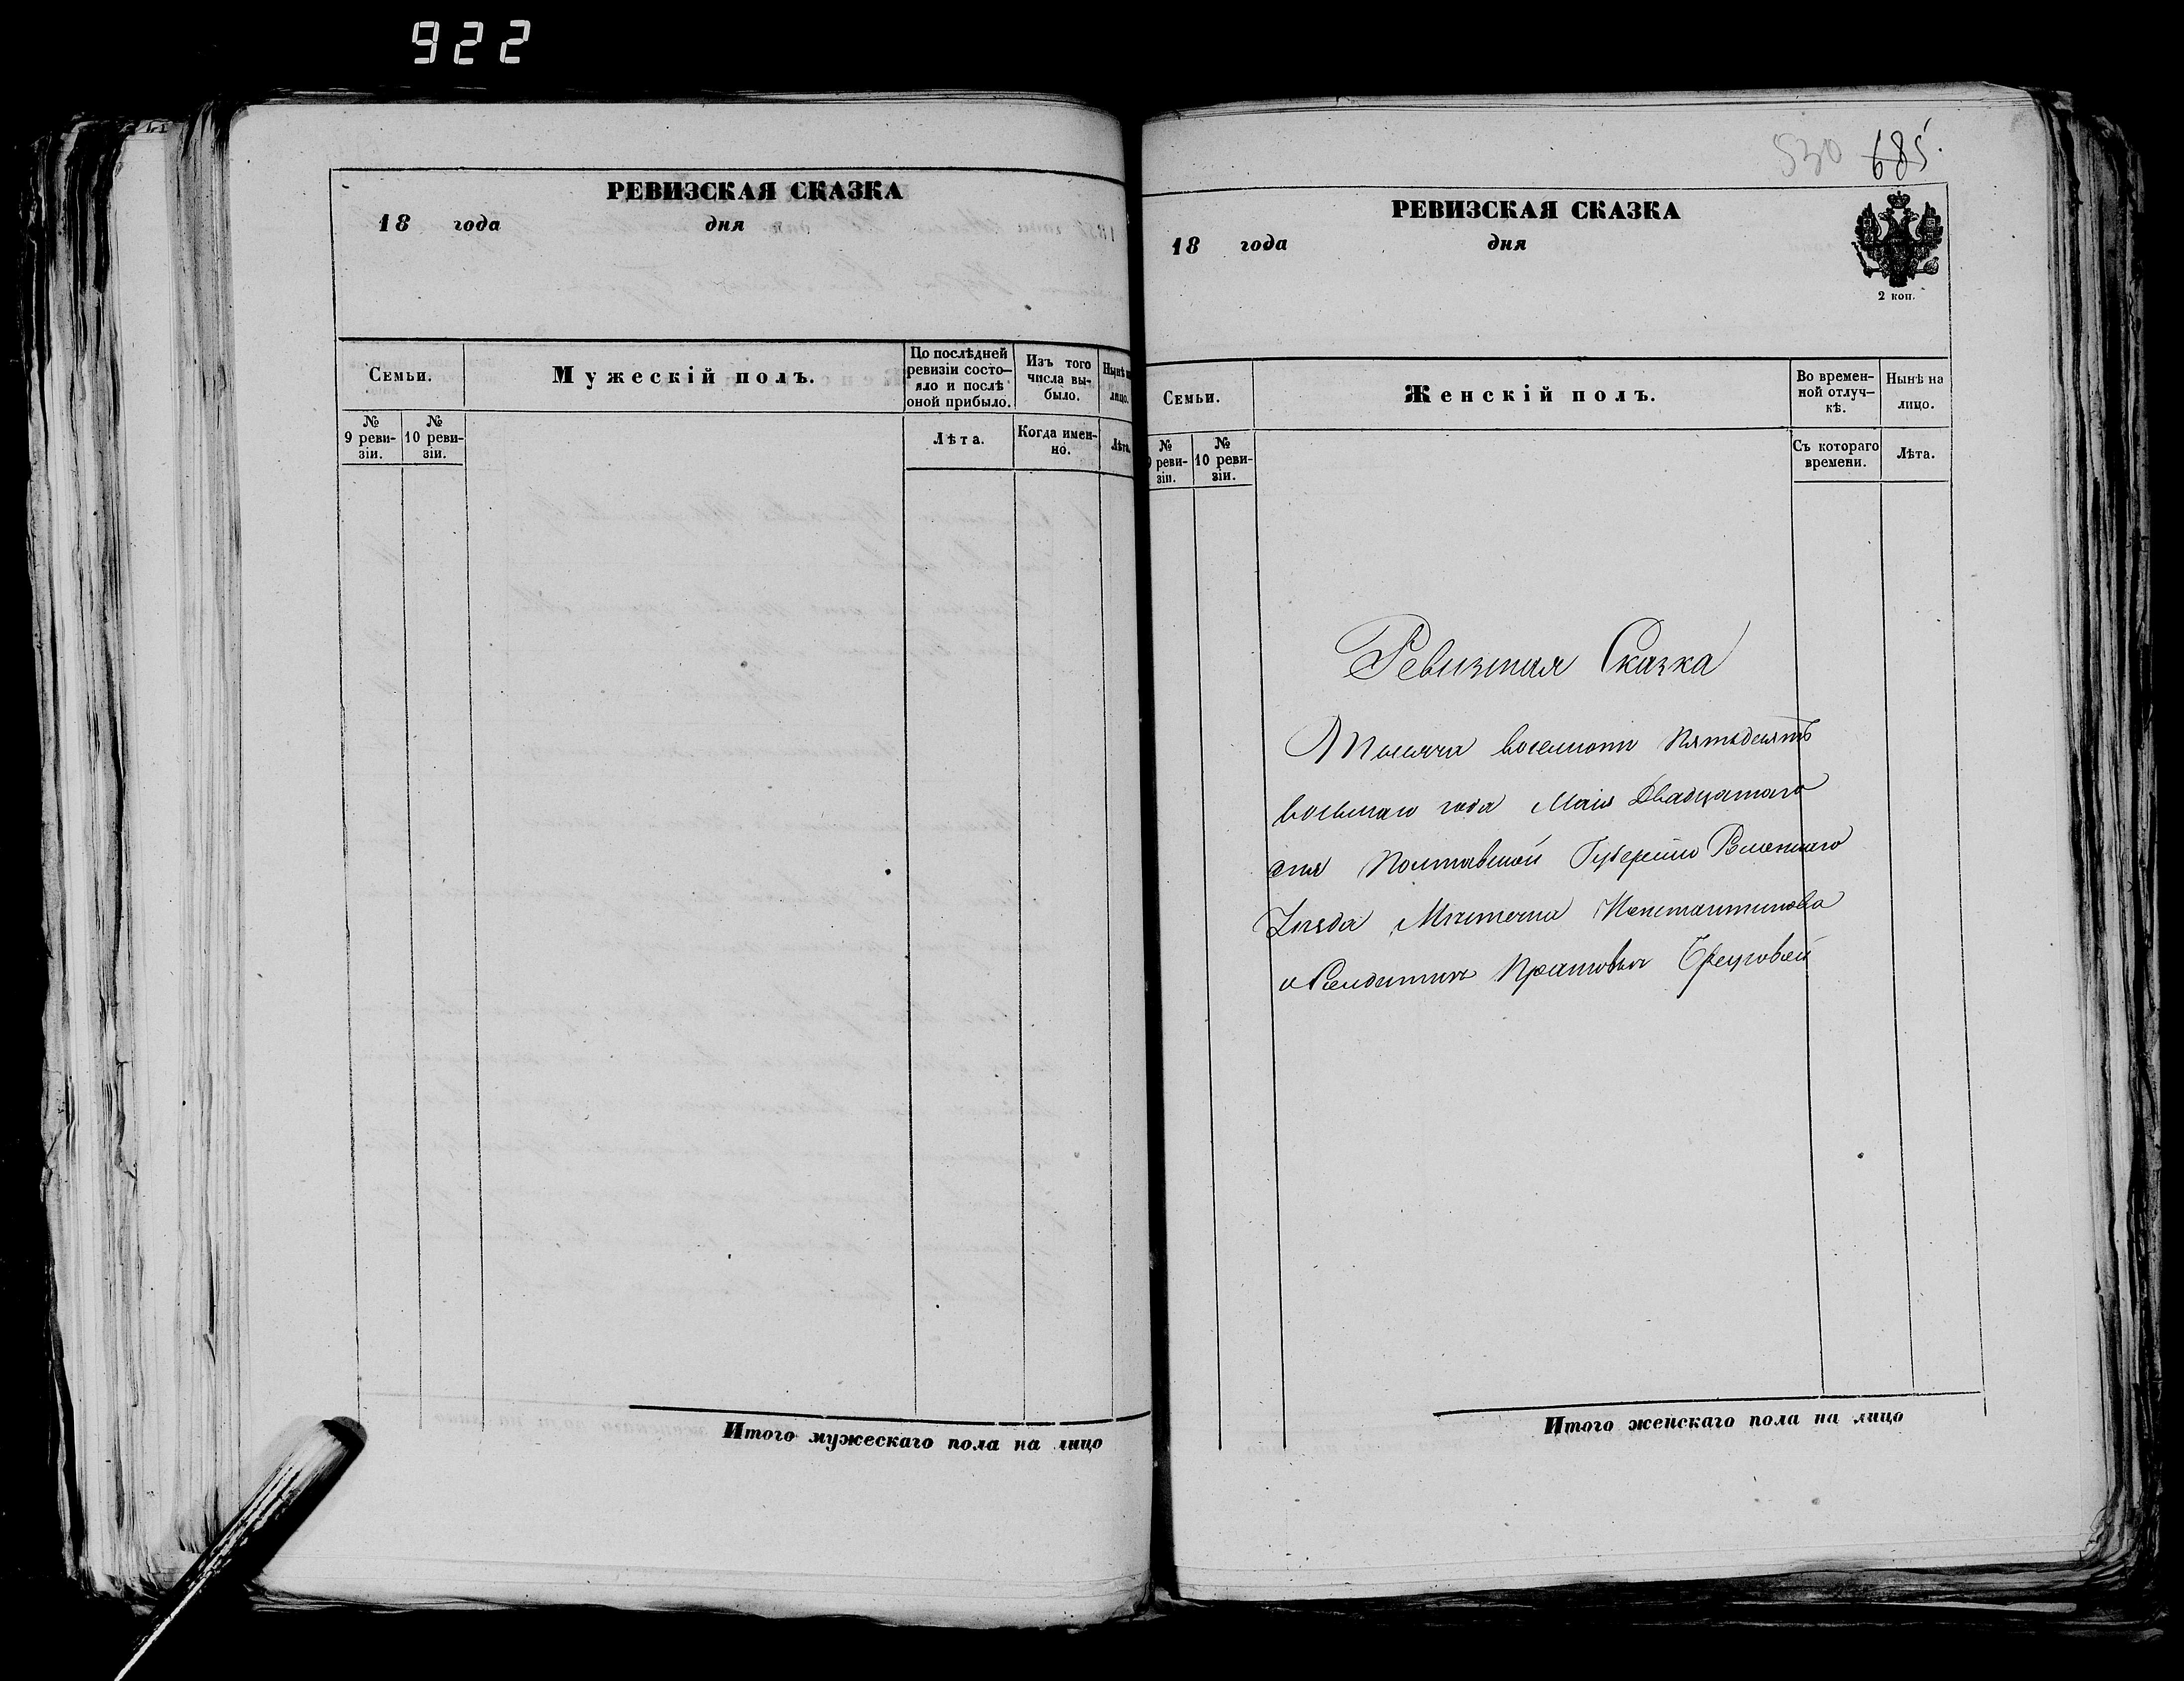 922
РЕВИЗСКАЯ СКАЗКА
18 года дня
Семьи.
Мужескій полъ.
По послѣдней ревизіи состояло и послѣ оной прибыло.
Изъ того числа выбыло.
Нынѣ на лицо.
№ 9 ревизіи.
№ 10 ревизіи.
Лѣта.
Когда именно.
Лѣта.
Итого мужескаго пола на лицо
530 685
РЕВИЗСКАЯ СКАЗКА
18 года дня
2 коп.
Семьи.
Женскій полъ.
Во временной отлучкѣ.
Нынѣ на лицо.
№ 9 ревизіи.
№ 10 ревизіи.
Съ котораго времени.
Лѣта.
Ревизская Сказка
Тысяча восемсотъ Пятьдесятъ
восьмаго года Маія Двадцатаго
дня Полтавской Губерніи Роменскаго
Уезда Мѣстечка Константинова
Итого женскаго пола на лицо